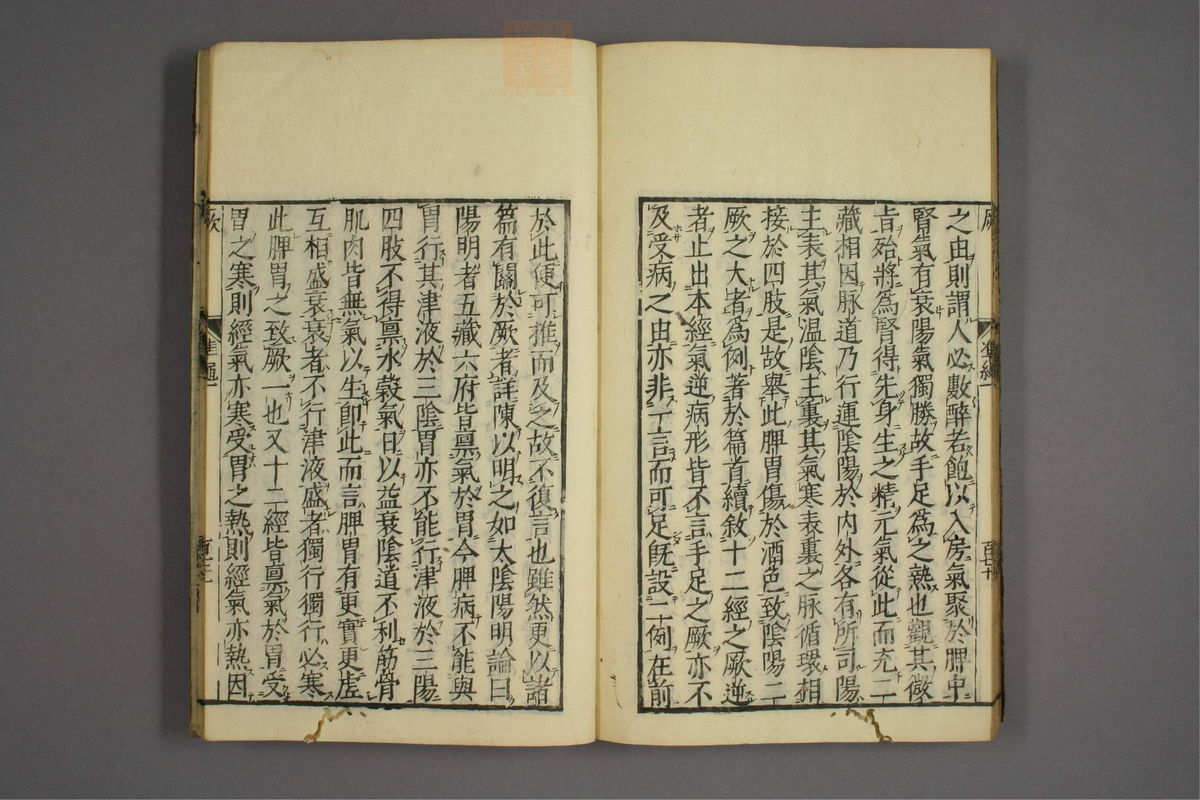 之由則謂人必數醉若飽以入房氣聚於脾中
腎氣有衰陽氣獨勝故手足爲之熱也觀其微
旨殆將爲腎得先身生之精元氣從此而充二
藏相因脉道乃行運陰陽於内外各有所司陽
主表其氣温陰主裏其氣寒表裏之脉循環相
接於四肢是故舉此脾胃傷於酒色致陰陽二
厥之大者爲例著於篇首續敘十二經之厥逆
者止出本經氣逆病形皆不言手足之厥亦不
及受病之由亦非一言而可足既設二例在前
於此便可推而及之故不復言也雖然更以諸
篇有關於厥者詳陳以明之如太陰陽明論曰
陽明者五藏六府皆禀氣於胃今脾病不能與
胃行其津液於三陰胃亦不能行津液於三陽
四肢不得禀水穀氣日以益衰陰道不利筋骨
肌肉皆無氣以生卽此而言脾胃有更實更虚
互相盛衰衰者不行津液盛者獨行獨行必寒
此脾胃之致厥一也又十二經皆禀氣於胃受
胃之寒則經氣亦寒受胃之熱則經氣亦熱因